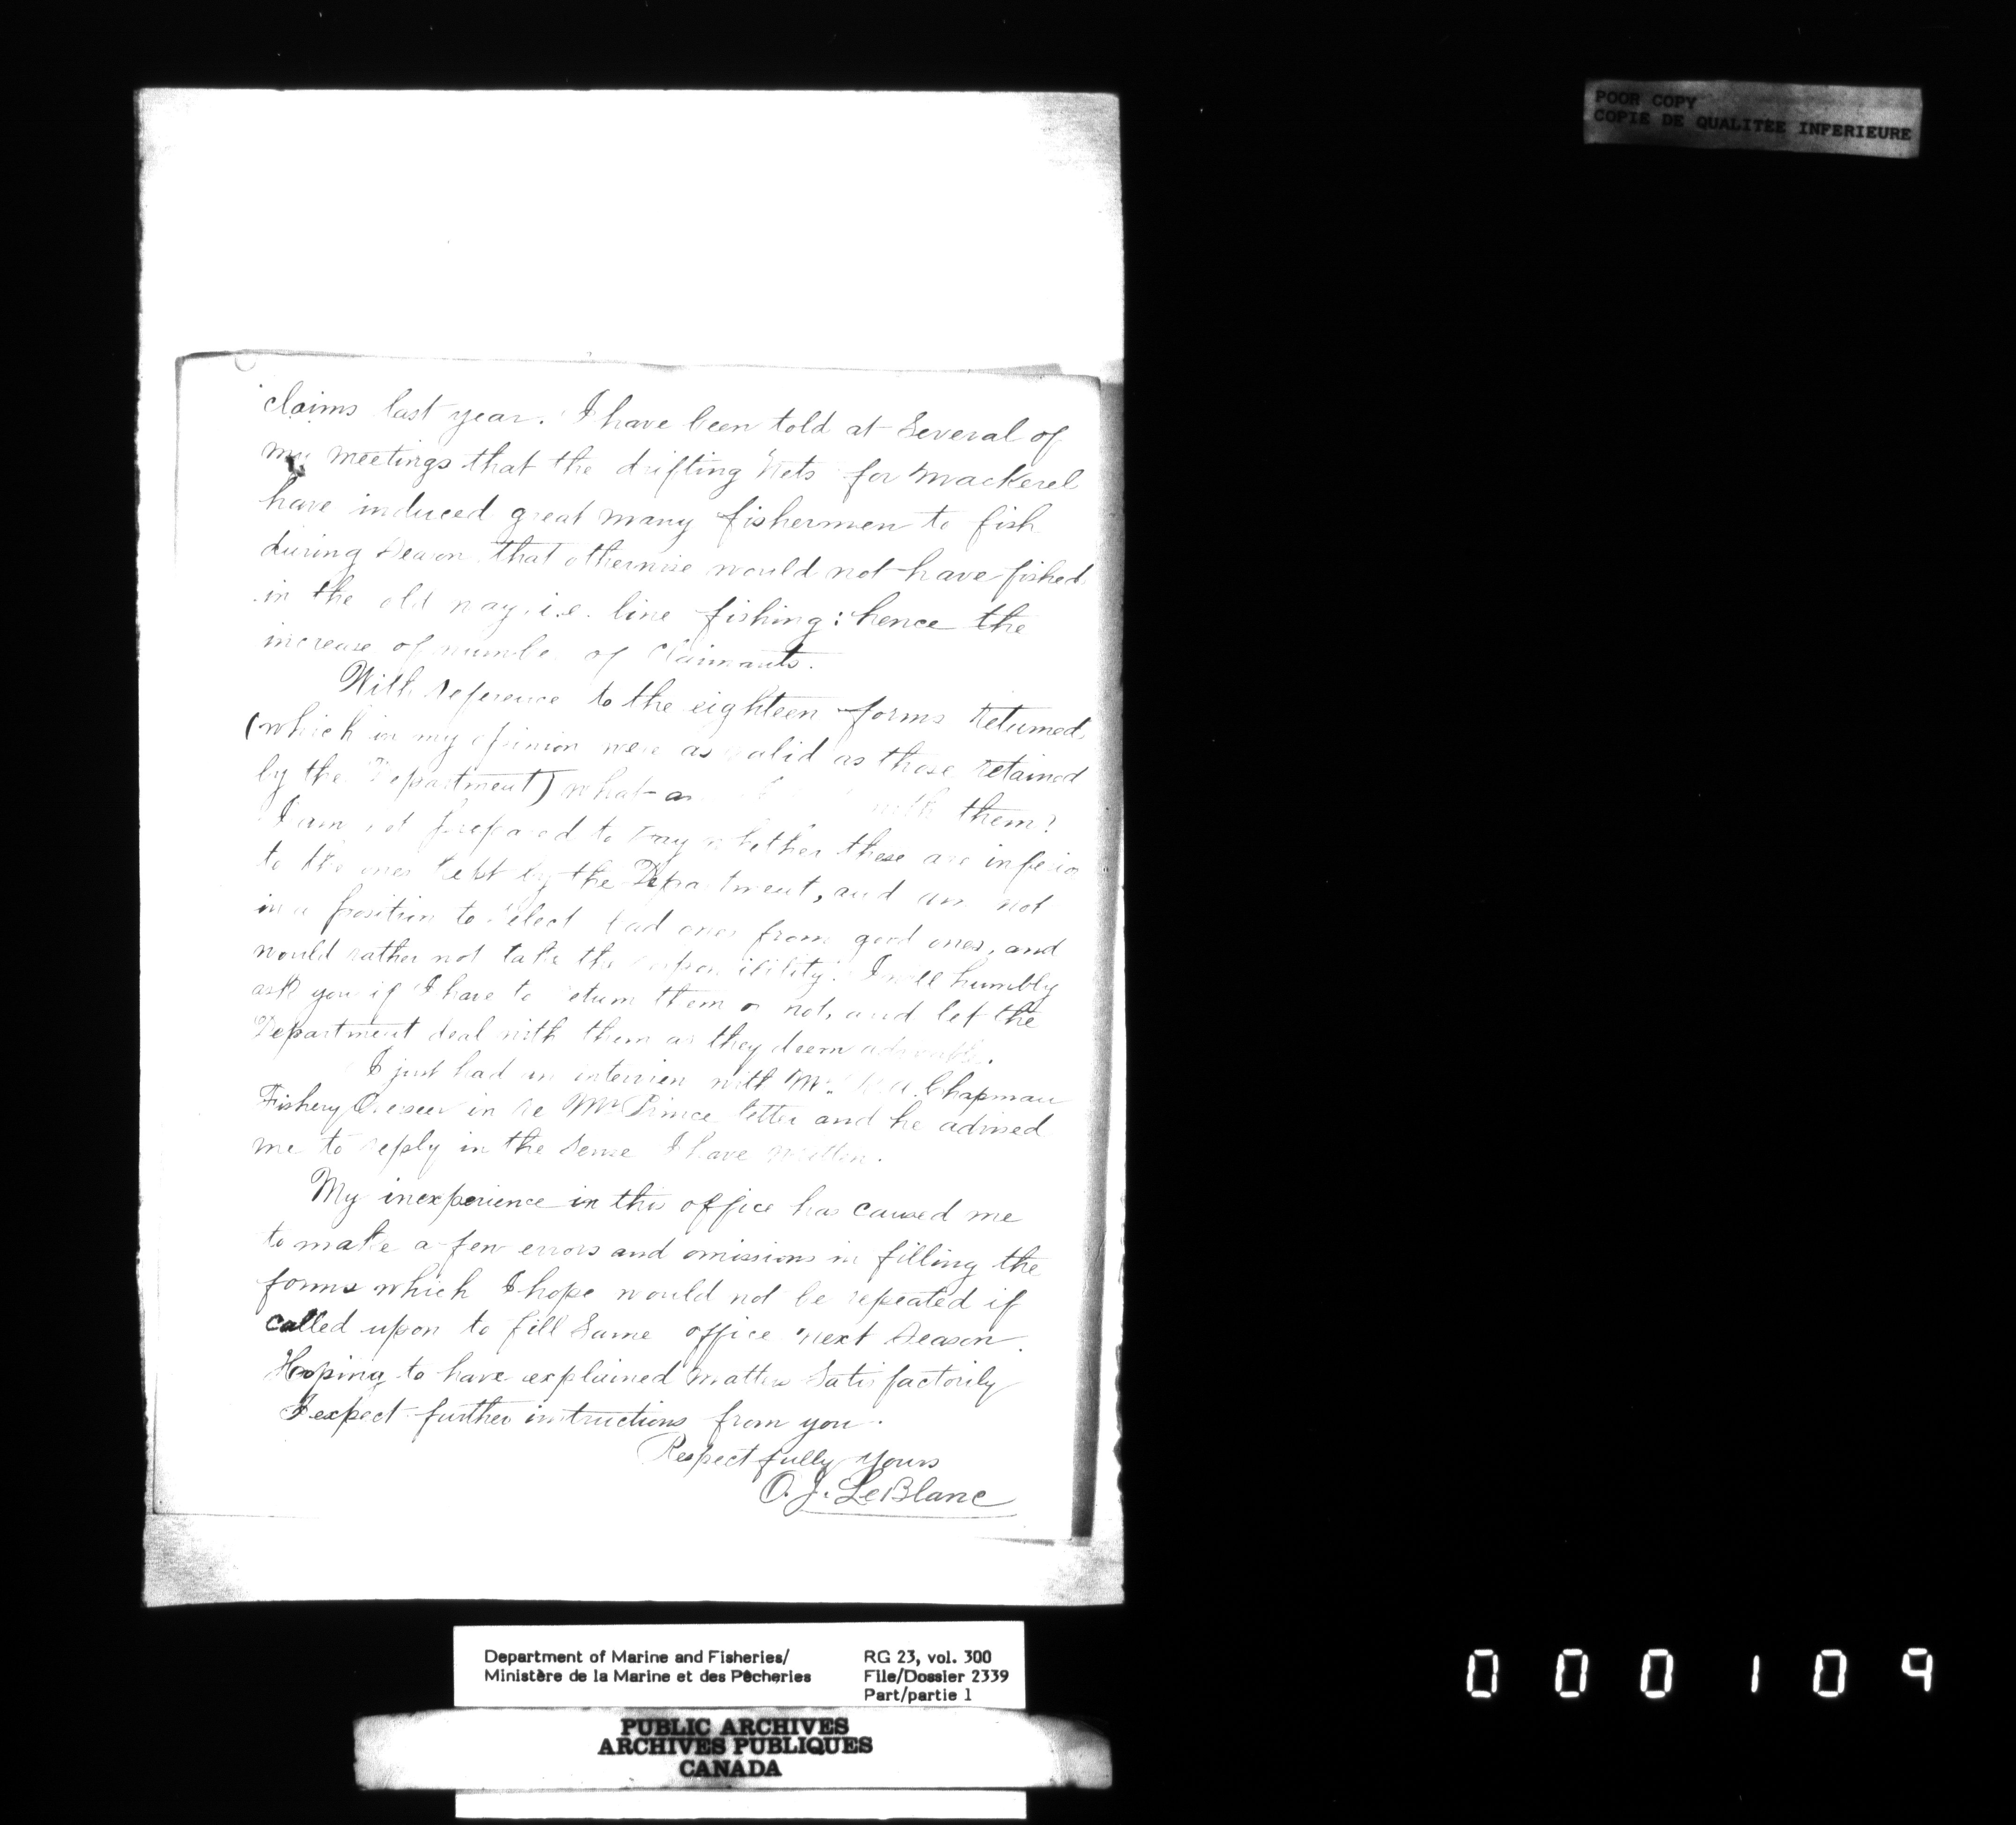 POOR COPY
COPIE DE QUALITEE INFERIEURE
claims last year. I have been told at several of
my meetings that the drifting nets for mackerel
have induced great many fishermen to fish
during season that otherwise would not have fished
in the old way, i.e. line fishing: hence the
increase of number of claimants.
With reference to the eighteen forms returned
(which in my opinion were as valid as those retained
by the Department) what am with them?
I am not prepared to say whether these are inferior
to the ones kept by the Department, and am not
in a position to select bad ones from good ones, and
would rather not take the responsibility. I will humbly
ask you if I have to return them or not, and let the
Department deal with them as they deem advisable.
I just had an interview with Mr. Chapman
Fishery Overseer in re Mr Prince letter and he advised
me to reply in the sense I have written.
My inexperience in this office has caused me
to make a few errors and omissions in filling the
forms which I hope would not be repeated if
called upon to fill same office next season.
Hoping to have explained matters satisfactorily
I expect further instructions from you.
Respectfully yours
O. J. LeBlanc
Department of Marine and Fisheries/
Ministère de la Marine et des Pêcheries
RG 23, vol. 300
File/Dossier 2339
Part/partie 1
PUBLIC ARCHIVES
ARCHIVES PUBLIQUES
CANADA
000109